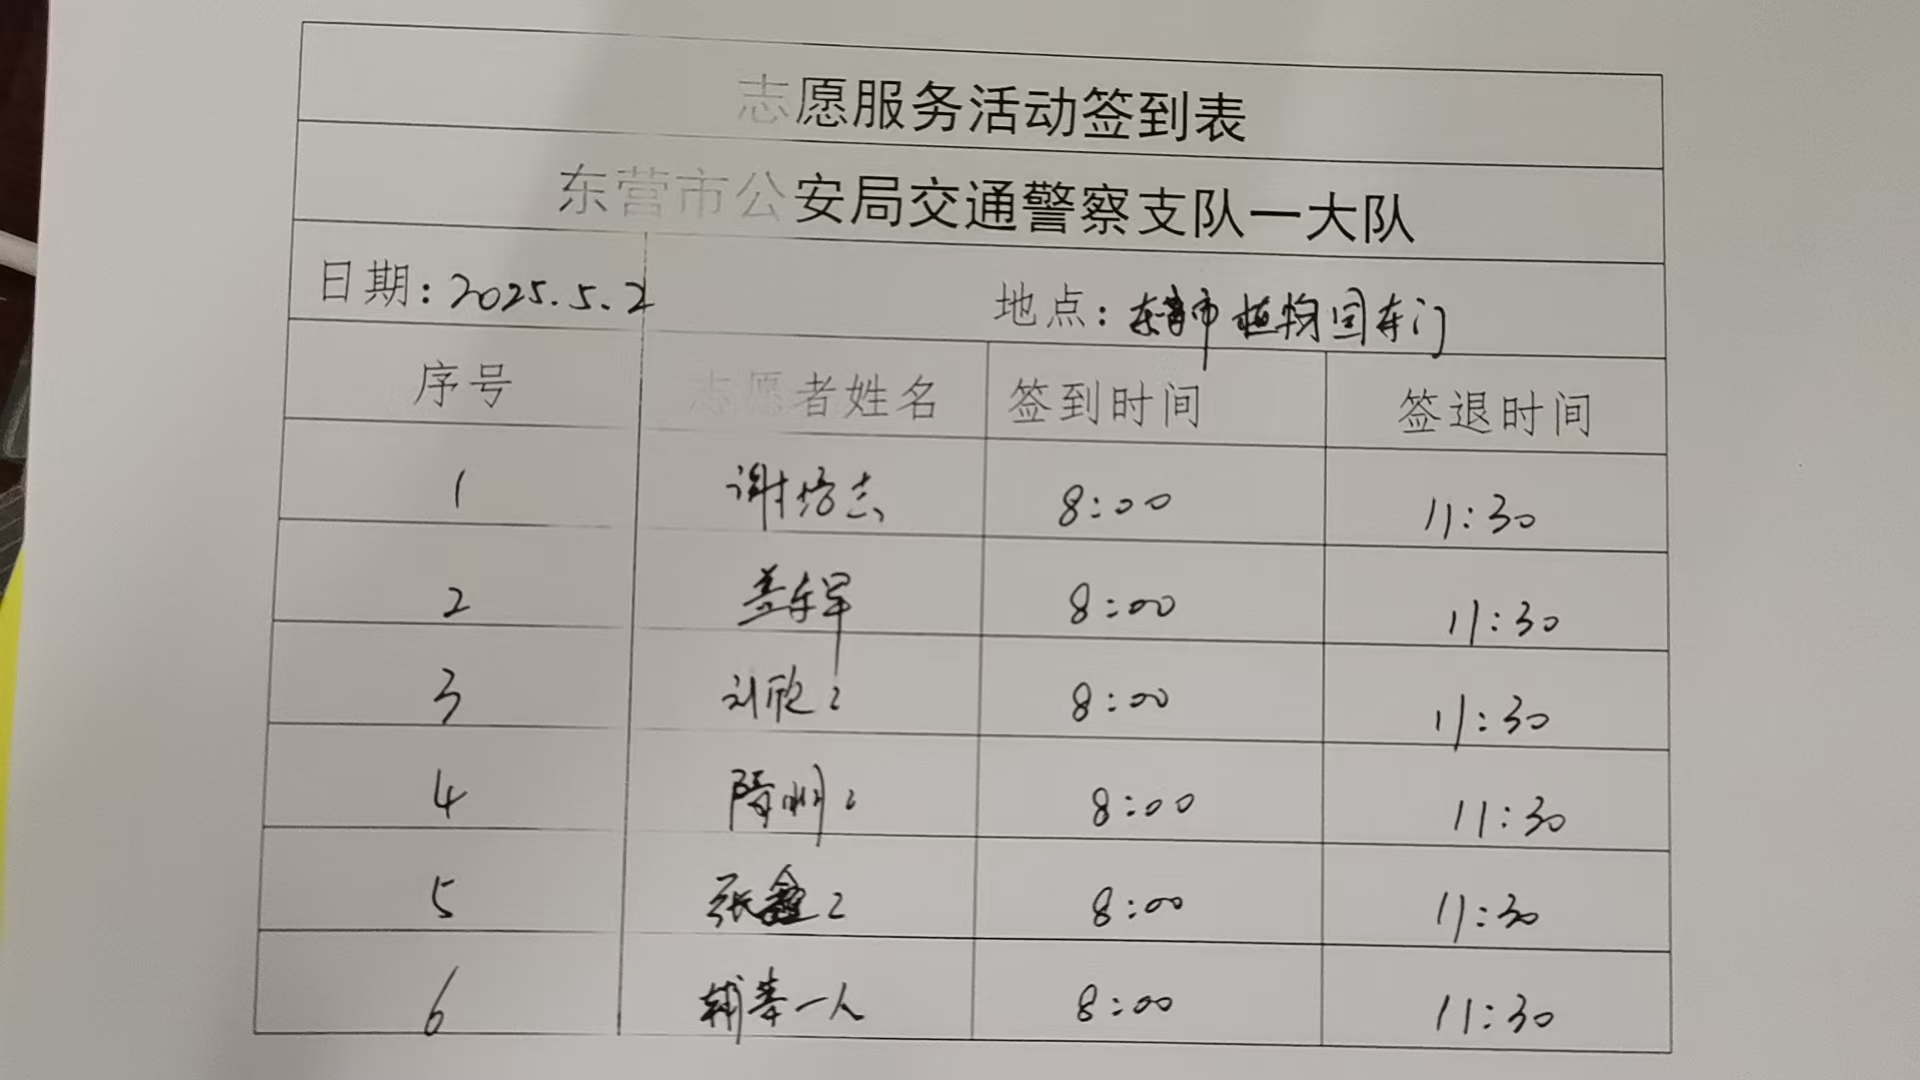 志愿服务活动签到表
东营市公安局交通警察支队一大队
日期：2025.5.2 地点：东营市植物园东门
序号 志愿者姓名 签到时间 签退时间
1 谢培志 8:00 11:30
2 盖东军 8:00 11:30
3 刘欣2 8:00 11:30
4 隋州2 8:00 11:30
5 张鑫2 8:00 11:30
6 一人 8:00 11:30